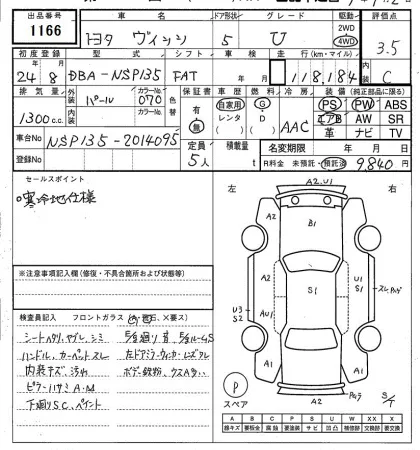 出品番号
1166
車名
トヨタ ヴィッツ
ドア形状
5
グレード
U
駆動
2WD
4WD
評価点
3.5
初度登録
24年8月
型式
DBA-NSP135
シフト
FAT
車検
年
月
走行(km・マイル)
118,184
内装
C
排気量
1300c.c.
外装
パール
カラーNo.
070
内装
カラーNo.
色替
保証書
有
無
車歴
自家用
レンタ
燃料
G
D
冷房
AAC
装備(純正部品に限る)
PS PW ABS
エアB AW SR
革 ナビ TV
車台No
NSP135-2014095
登録No
定員
5人
積載量
t
名変期限
年
月
日
R料金 未預託・預託済
9,840円
セールスポイント
○寒冷地仕様
※注意事項記入欄(修復・不具合箇所および状態等)
検査員記入
フロントガラス
シートヘタリ、ヤブレ、シミ
ハンドル、カーペットスレ
内装キズ、汚れ
下廻りSC、ペイント
左ドアミラーウィンカーレンズワレ
左
右
A2.U1
A2
B1
S1
U3
S2
A2
AU1
A1
A1
A2
P
スペア
A
線キズ
B
要板金
C
腐蝕
P
要塗装
S
サビ
U
凹凸
W
補修跡
XX
交換跡
X
要交換